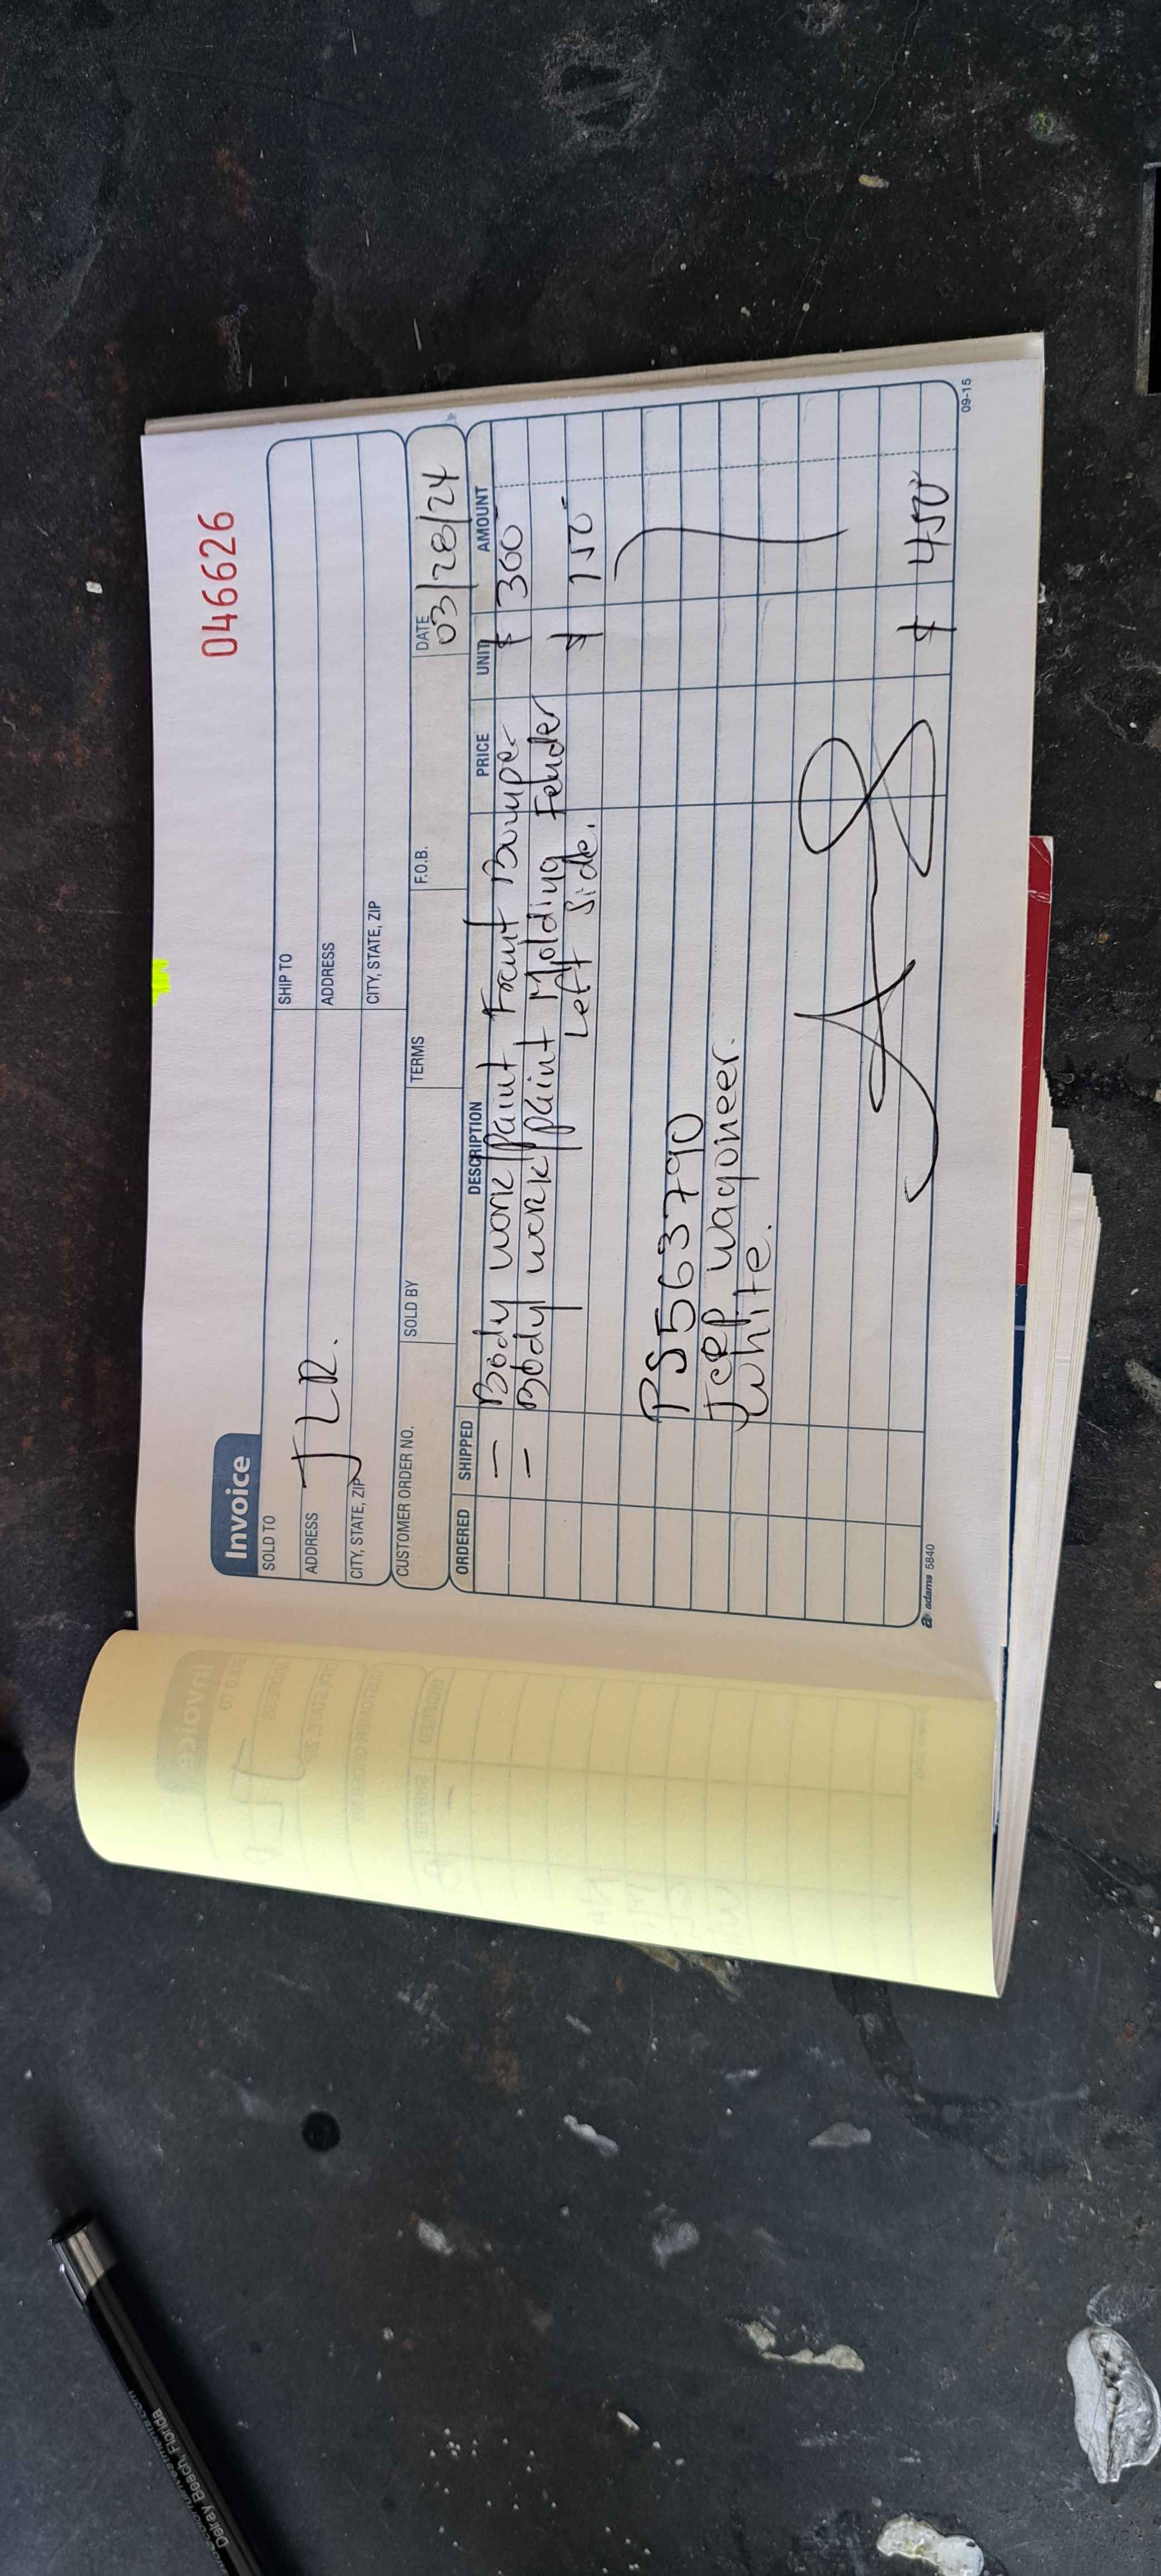 046626
Invoice
SOLD TO
SHIP TO
ADDRESS
JLR.
ADDRESS
CITY, STATE, ZIP
CITY, STATE, ZIP
CUSTOMER ORDER NO.
SOLD BY
TERMS
F.O.B.
DATE
03/28/24
ORDERED
SHIPPED
DESCRIPTION
PRICE
UNIT
AMOUNT
- Body work/paint Front Bumper $ 300-
- Body work/paint Molding Fender
Left Side. $ 150-
PS563790
Jeep wagoneer.
White.
$ 450
adams 5840
09-15
Delray Beach, Florida